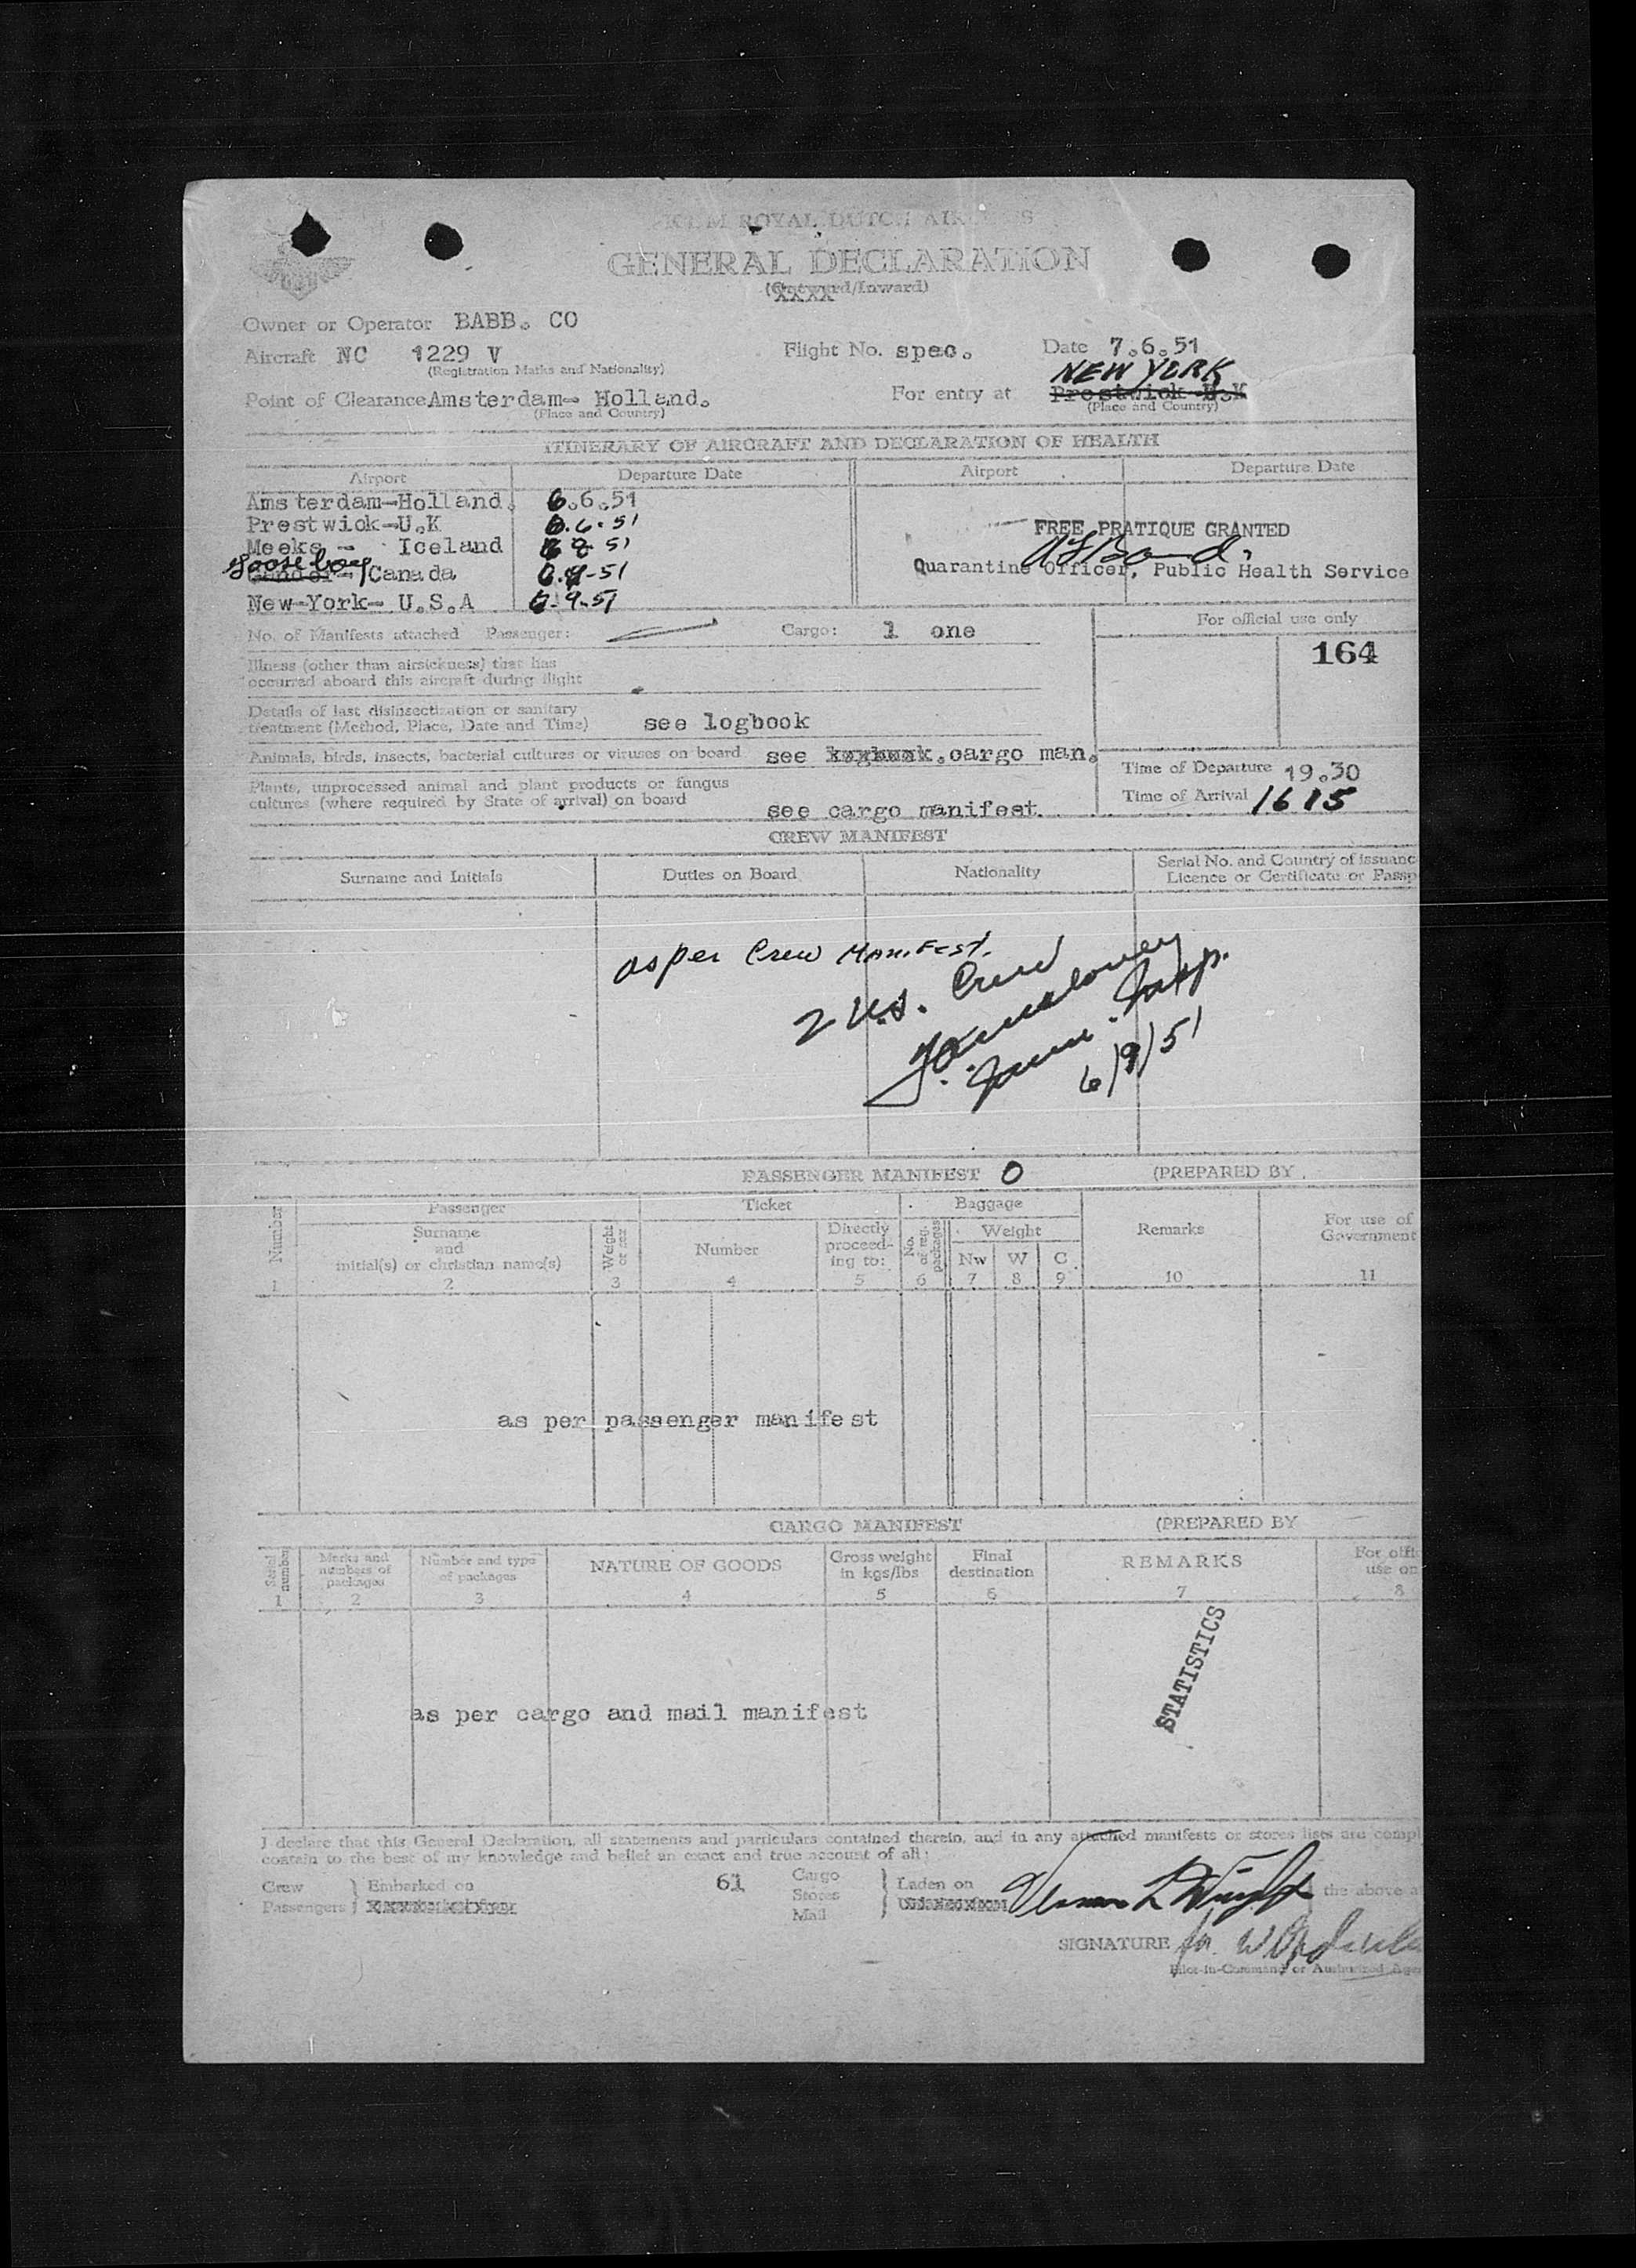 K L M ROYAL DUTCH AIRLINES
GENERAL DECLARATION
(Outward/Inward)
Owner or Operator BABB. CO
Aircraft NC 1229 V Flight No. spec. Date 7.6.51
(Registration Marks and Nationality)
NEW YORK
Point of Clearance Amsterdam- Holland. For entry at Prestwick U.K
(Place and Country) (Place and Country)
ITINERARY OF AIRCRAFT AND DECLARATION OF HEALTH
Airport Departure Date Airport Departure Date
Amsterdam-Holland. 6.6.51
Prestwick-U.K 6.6.51
FREE PRATIQUE GRANTED
Meeks - Iceland 8 51
Goose bay
Gander- Canada 6.9-51
Quarantine Officer, Public Health Service
New-York- U.S.A 6-9-51
No. of Manifests attached Passenger: Cargo: 1 one
For official use only
164
Illness (other than airsickness) that has
occurred aboard this aircraft during flight
Details of last disinsectization or sanitary
treatment (Method, Place, Date and Time) see logbook
Animals, birds, insects, bacterial cultures or viruses on board see logbook.cargo man.
Time of Departure 19.30
Plants, unprocessed animal and plant products or fungus
cultures (where required by State of arrival) on board see cargo manifest.
Time of Arrival 1615
CREW MANIFEST
Surname and Initials Duties on Board Nationality Serial No. and Country of issuanc
Licence or Certificate or Passp
as per Crew Manifest.
2 U.S. Crew
Imm. Insp.
6/9/51
PASSENGER MANIFEST 0 (PREPARED BY
Number Passenger Ticket Baggage Remarks For use of Government
Surname and initial(s) or christian name(s) Weight or sex Number Directly proceed- ing to: No. of reg. packages Weight
Nw W C
1 2 3 4 5 6 7 8 9 10 11
as per passenger manifest
CARGO MANIFEST (PREPARED BY
Serial number Marks and numbers of packages Number and type of packages NATURE OF GOODS Gross weight in kgs/lbs Final destination REMARKS For offic use on
1 2 3 4 5 6 7 8
STATISTICS
as per cargo and mail manifest
I declare that this General Declaration, all statements and particulars contained therein, and in any attached manifests or stores lists are compl
contain to the best of my knowledge and belief an exact and true account of all:
Crew Embarked on 61 Cargo Laden on
Passengers Stores the above a
Mail
SIGNATURE
Pilot-in-Command or Authorized Agen